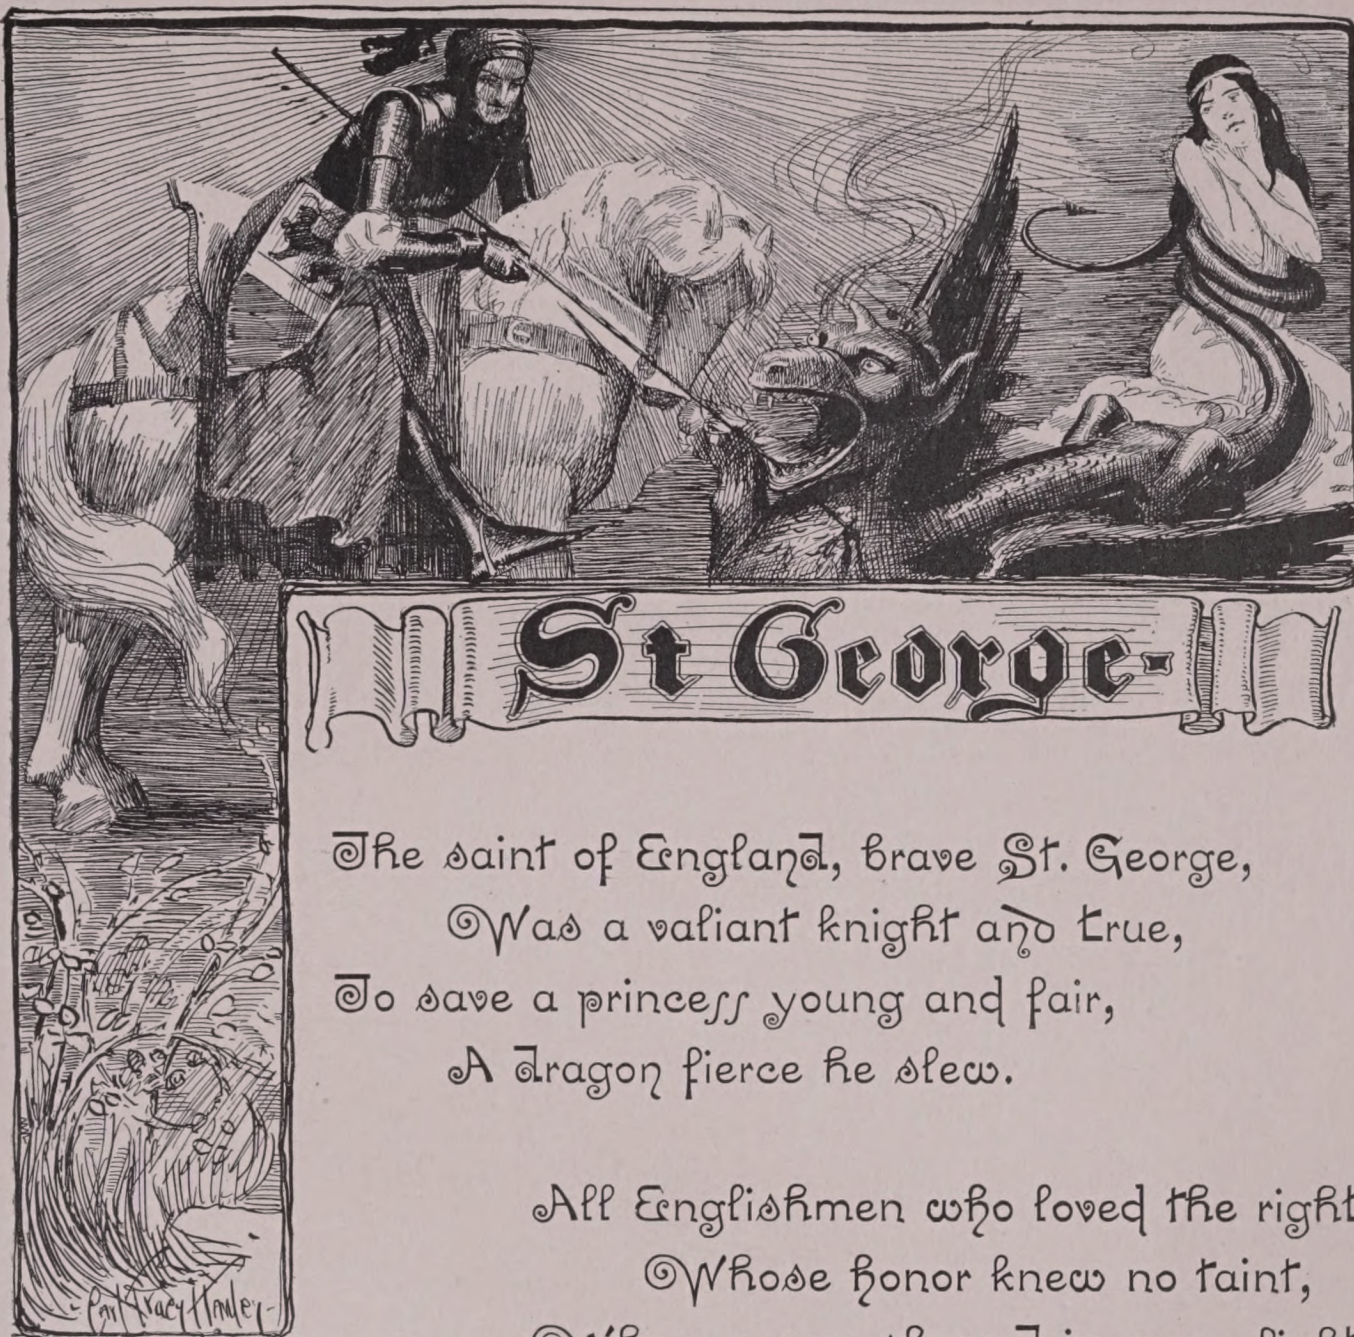 St George-
The saint of England, brave St. George,
Was a valiant knight and true,
To save a princess young and fair,
A dragon fierce he slew.
All Englishmen who loved the right
Whose honor knew no taint,